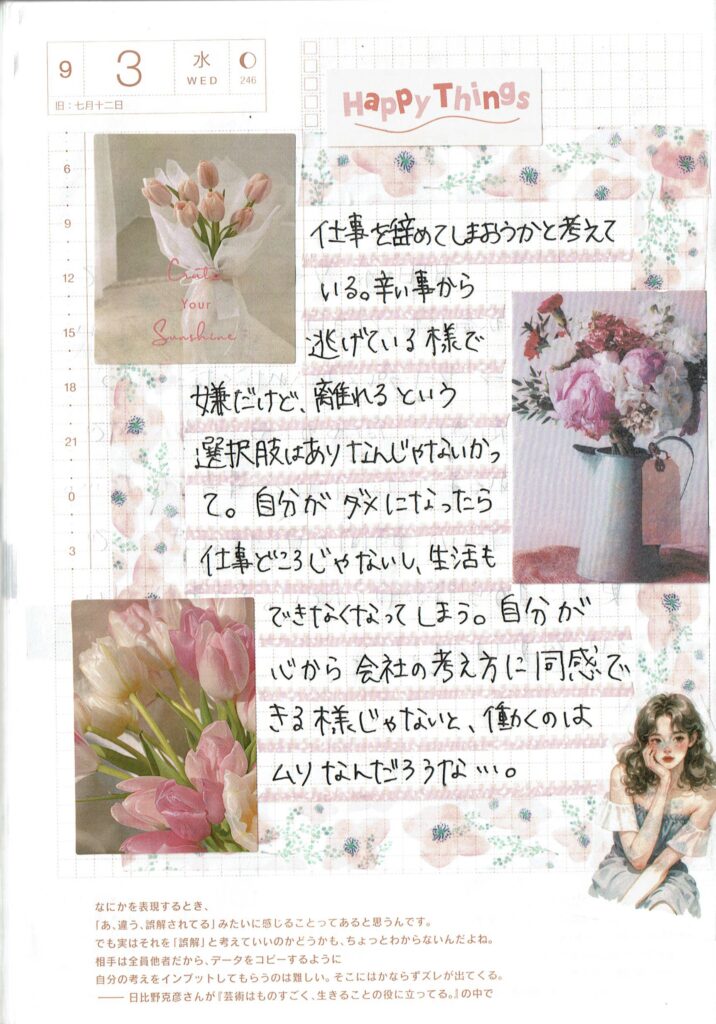 9
3
水
WED
246
旧：七月十二日
Happy Things
6
9
12
15
18
21
0
3
Your
Sunshine
仕事を辞めてしまおうかと考えて
いる。辛い事から
逃げている様で
嫌だけど、離れるという
選択肢はありなんじゃないかっ
て。自分がダメになったら
仕事どころじゃないし、生活も
できなくなってしまう。自分が
心から会社の考え方に同感で
きる様じゃないと、働くのは
ムリなんだろうな…。
なにかを表現するとき、
「あ、違う、誤解されてる」みたいに感じることってあると思うんです。
でも実はそれを「誤解」と考えていいのかどうかも、ちょっとわからないんだよね。
相手は全員他者だから、データをコピーするように
自分の考えをインプットしてもらうのは難しい。そこにはかならずズレが出てくる。
—— 日比野克彦さんが『芸術はものすごく、生きることの役に立ってる。』の中で